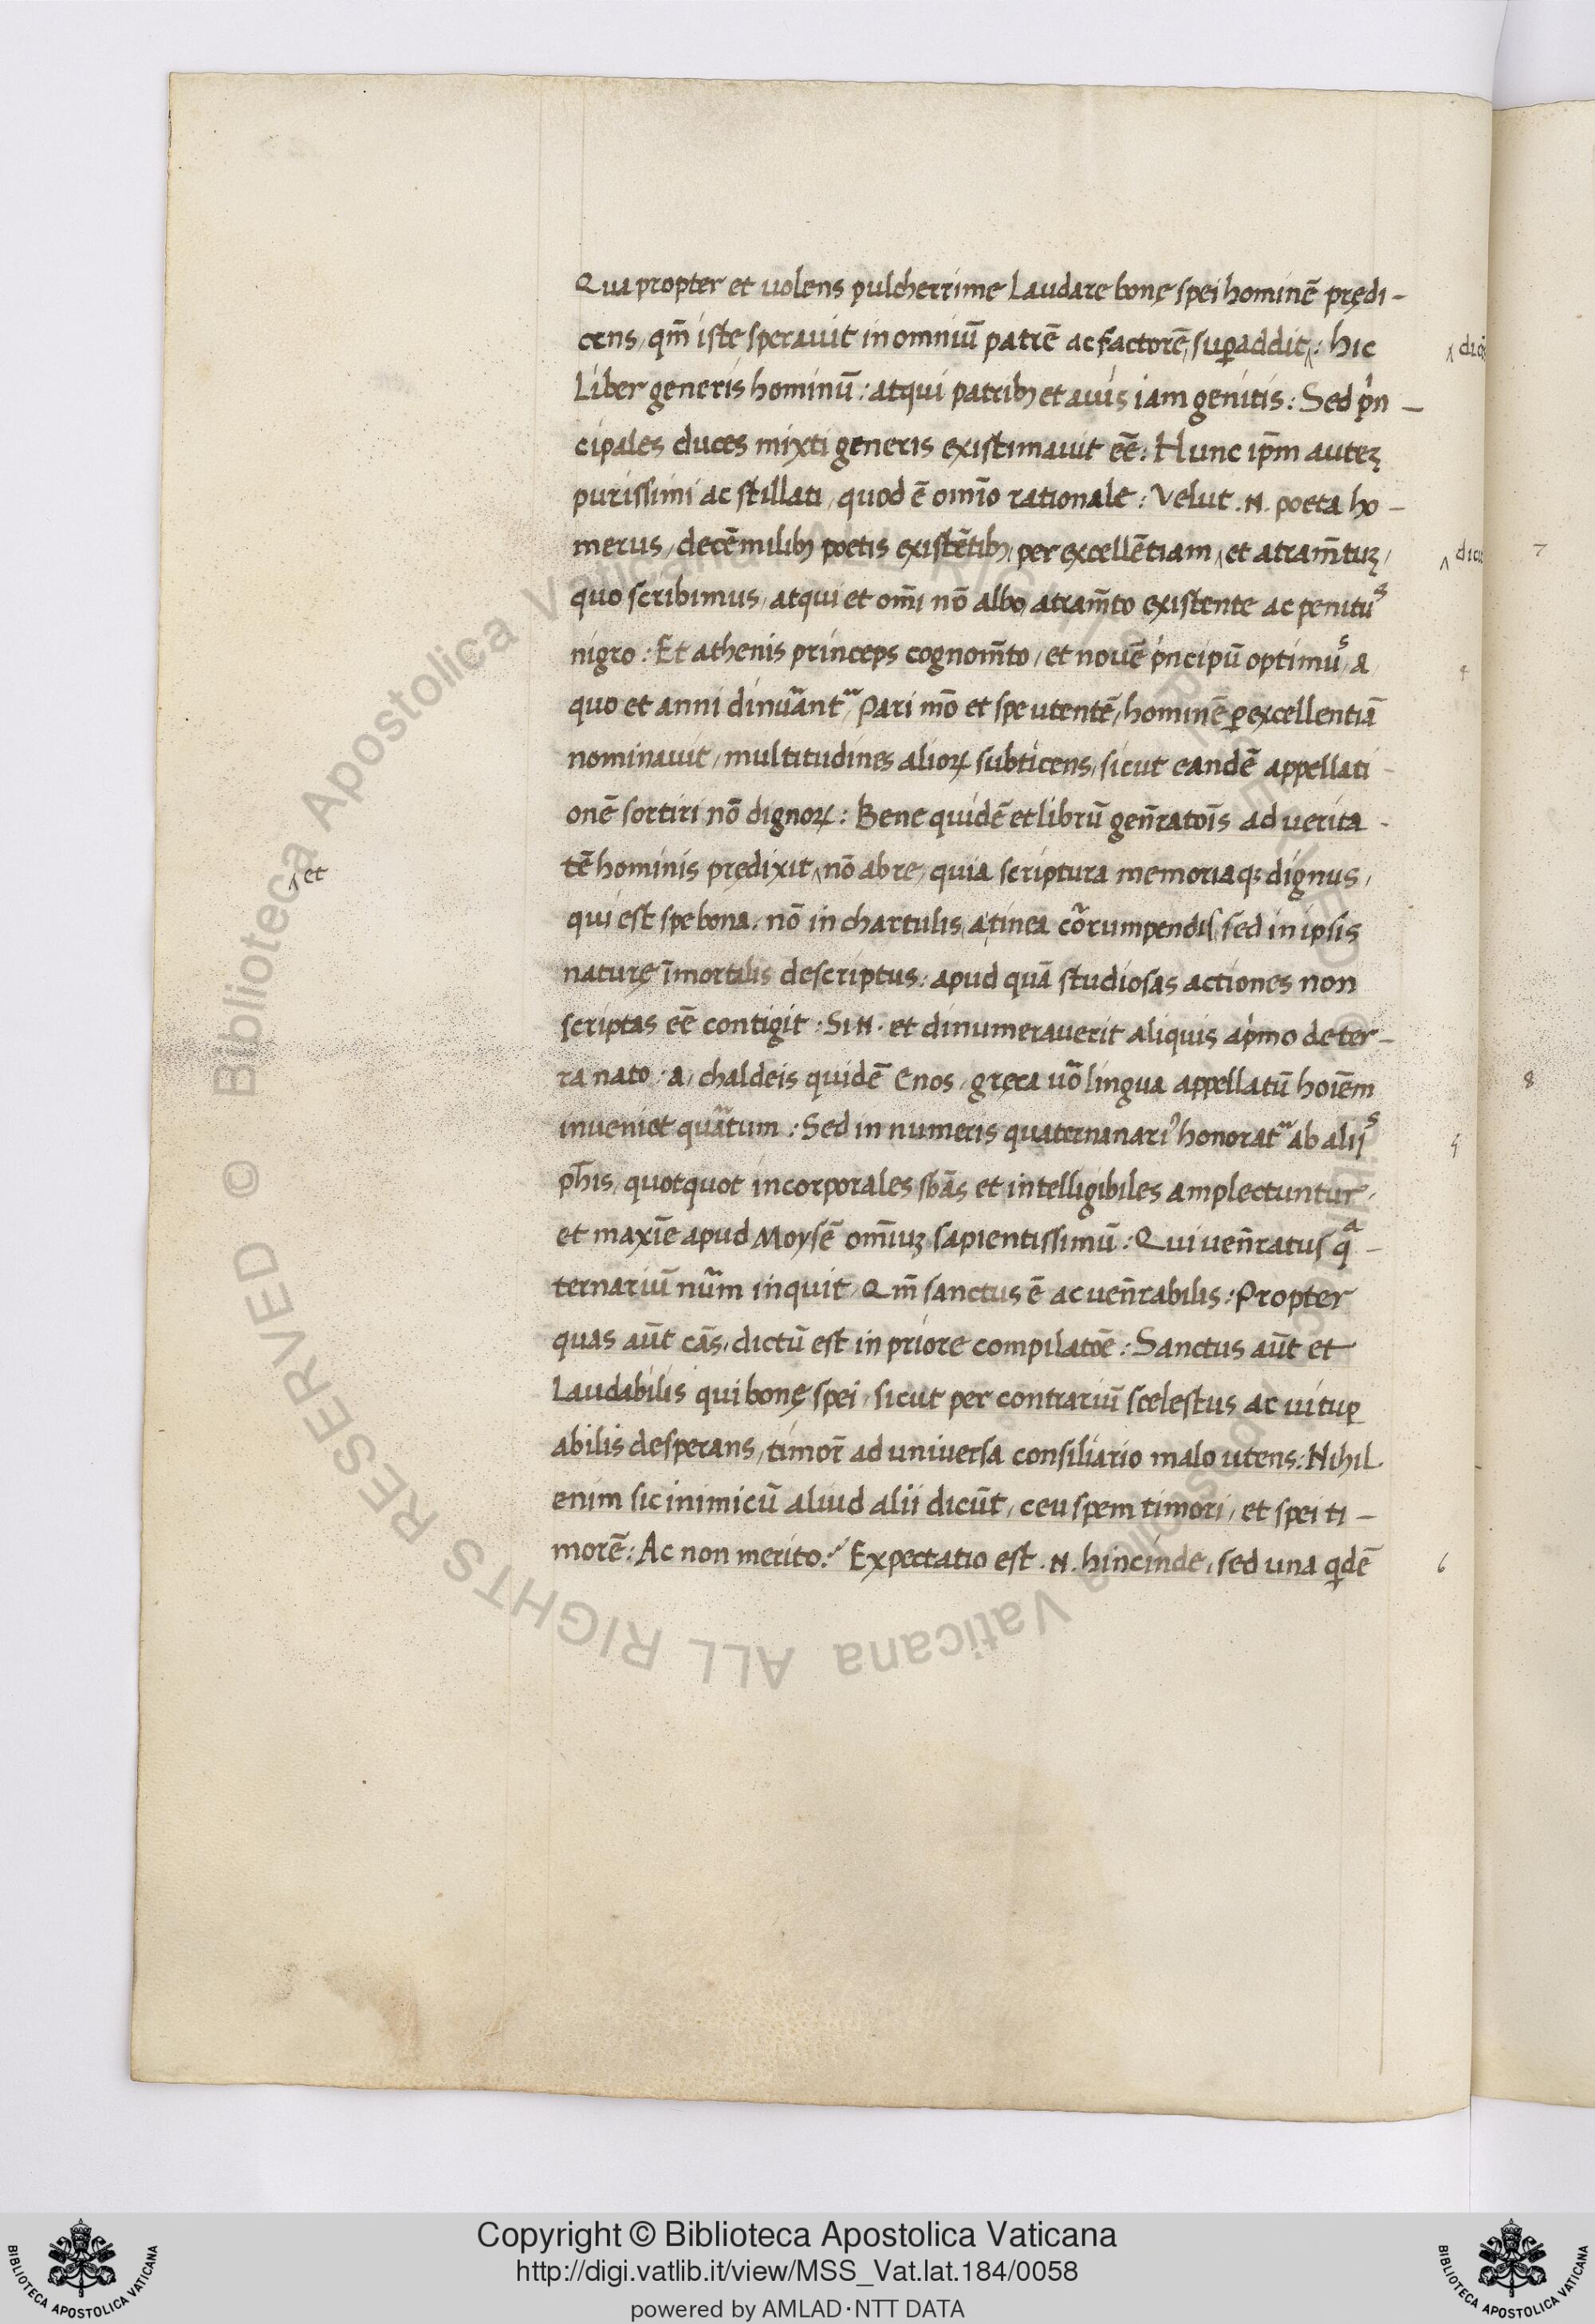 Quapropter et uolens pulcherrime Laudare bonę spei hominē prędi-
cens, qm̄ iste sperauit in omniū patrē ac factorē, suꝑaddit: hic
Liber generis hominū: atqui patribꝫ et auis iam genitis: Sed prin-
cipales duces mixti generis existimauit eē: Hunc ip̄m autez
purissimi ac stillati, quod ē om̄io rationale: Velut .N. poeta ho-
merus, decēmilibꝫ poetis existētibꝫ, per excellētiam, et atram̄tuz,
quo scribimus, atqui et om̄i nō albo, atram̄to existente ac penitus
nigro: Et athenis princeps cognom̄to, et nouē principū optimus, a
quo et anni dinuant, Pari mō et spe utentē, hominē ꝑ excellentiā
nominauit, multitudines alioꝝ subticens, sicut eandē appellati-
onē sortiri nō dignoꝝ: Bene quidē et librū gen̄ratōis ad uerita-
tē hominis prędixit, nō abre, quia scriptura memoriaqꝫ dignus,
^et
qui est spe bona. nō in chartulis, a tinea cōrumpendis, sed in ipsis
naturę īmortalis descriptus: apud quā studiosas actiones non
scriptas eē contigit: Si N. et dinumerauerit aliquis a primo de ter-
ra nato: a, chaldeis quidē Enos, gręca uō lingua appellatū hoīem
inueniet quatum: Sed in numeris quaternanarius honorat ab aliis
ph̄is, quotquot incorporales sbās et intelligibiles amplectuntur,
et maxīe apud Moysē om̄iuz sapientissimū: Qui uen̄ratus qa-
ternariū num inquit, Qm̄ sanctus ē ac uen̄rabilis: Propter
quas aūt cās, dictū est in priore compilatōe: Sanctus aūt et
Laudabilis qui bonę spei, sicut per contrariū scelestus ac uituꝑ
abilis desperans, timor̄ ad uniuersa consiliario malo utens: Nihil
enim sic inimicū aliud alii dicūt, ceu spem timori, et spei ti-
morē: Ac non merito: Expectatio est .N. hincinde, sed una qidē
6
7
8
Copyright © Biblioteca Apostolica Vaticana
http://digi.vatlib.it/view/MSS_Vat.lat.184/0058
powered by AMLAD·NTT DATA
BIBLIOTECA APOSTOLICA VATICANA
BIBLIOTECA APOSTOLICA VATICANA
© Biblioteca Apostolica Vaticana ALL RIGHTS RESERVED